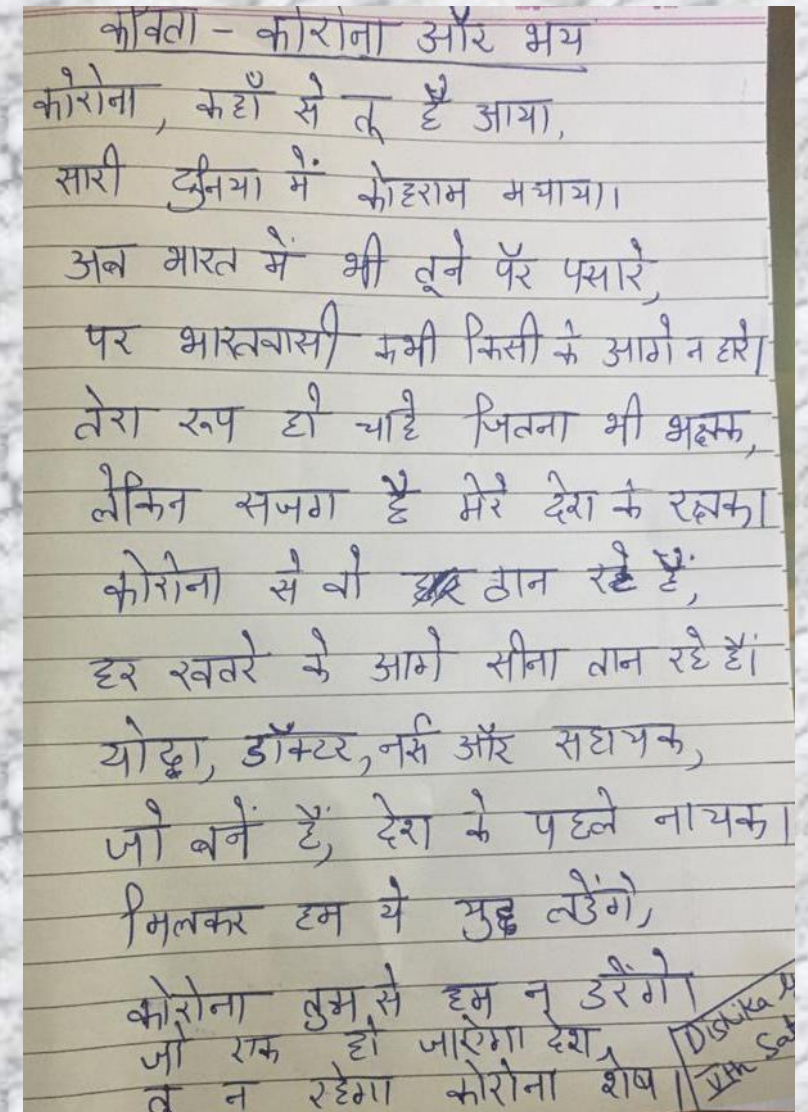 कविता - कोरोना और भय
कोरोना, कहाँ से तू है आया,
सारी दुनिया में कोहराम मचाया।
अब भारत में भी तूने पैर पसारे,
पर भारतवासी कभी किसी के आगे न हारे।
तेरा रूप हो चाहे जितना भी भक्षक,
लेकिन सजग है मेरे देश के रक्षक।
कोरोना से वो ठान रहे हैं,
हर खतरे के आगे सीना तान रहे हैं।
योद्धा, डॉक्टर, नर्स और सहायक,
जो बनें हैं, देश के पहले नायक।
मिलकर हम ये युद्ध लडेंगे,
कोरोना तुम से हम न डरेंगे।
जो एक हो जाऐगा देश,
तू न रहेगा कोरोना शेष।
Dishika
Vth